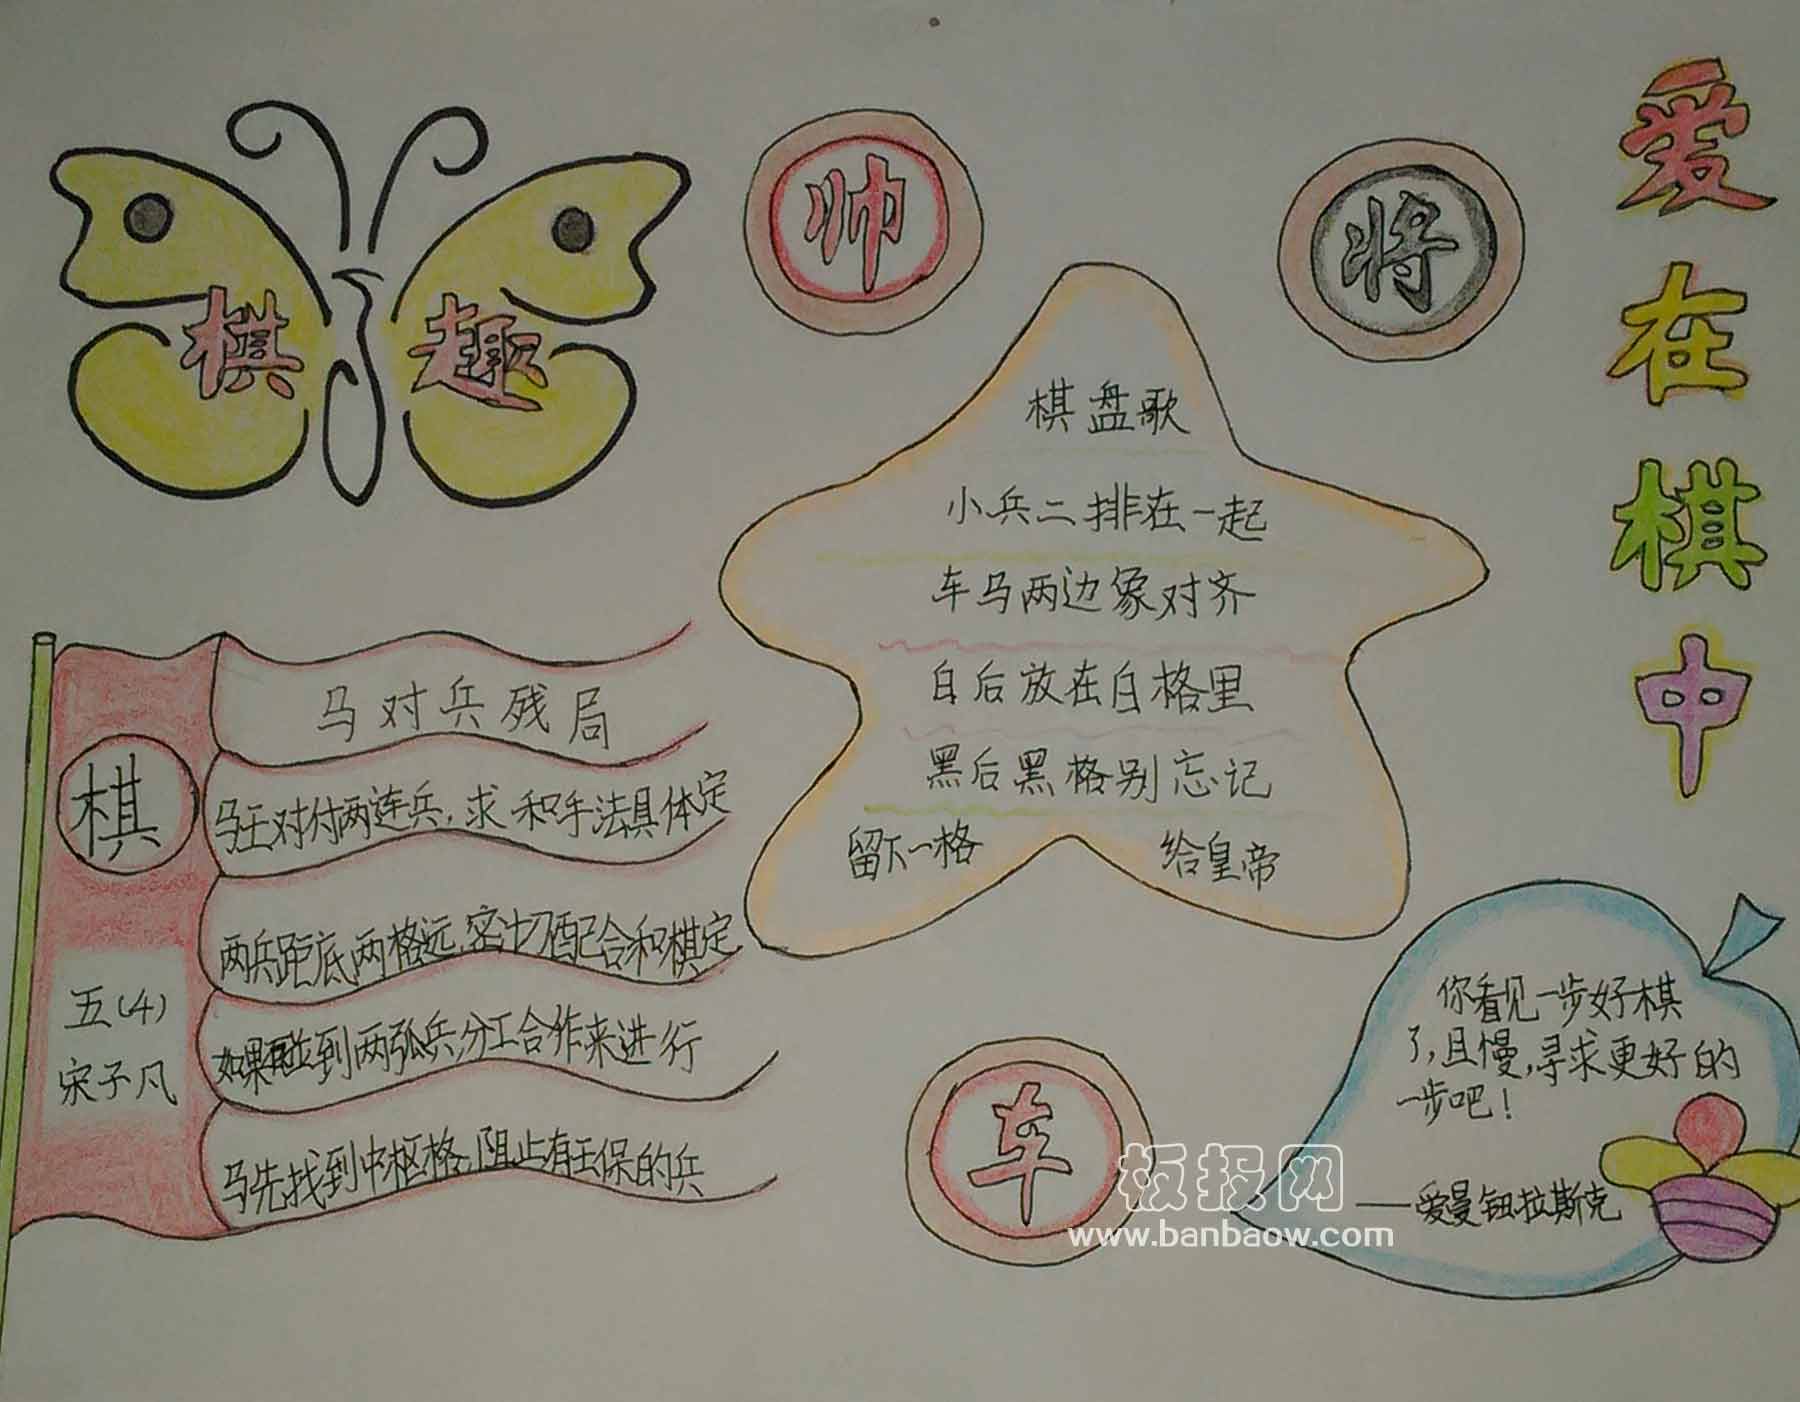 爱在棋中
棋趣
帅
将
棋盘歌
小兵二排在一起
车马两边象对齐
白后放在白格里
黑后黑格别忘记
留下一格 给皇帝
马对兵残局
棋
马王对付两连兵，求和手法具体定
两兵距底两格远，密切配合和棋定
如果再拉到两弧兵，分工合作来进行
马先找到中枢格，阻止有王保的兵
五(4)
宋子凡
车
你看见一步好棋
了，且慢，寻求更好的
一步吧！
——爱曼钮拉斯克
板报网
www.banbaow.com